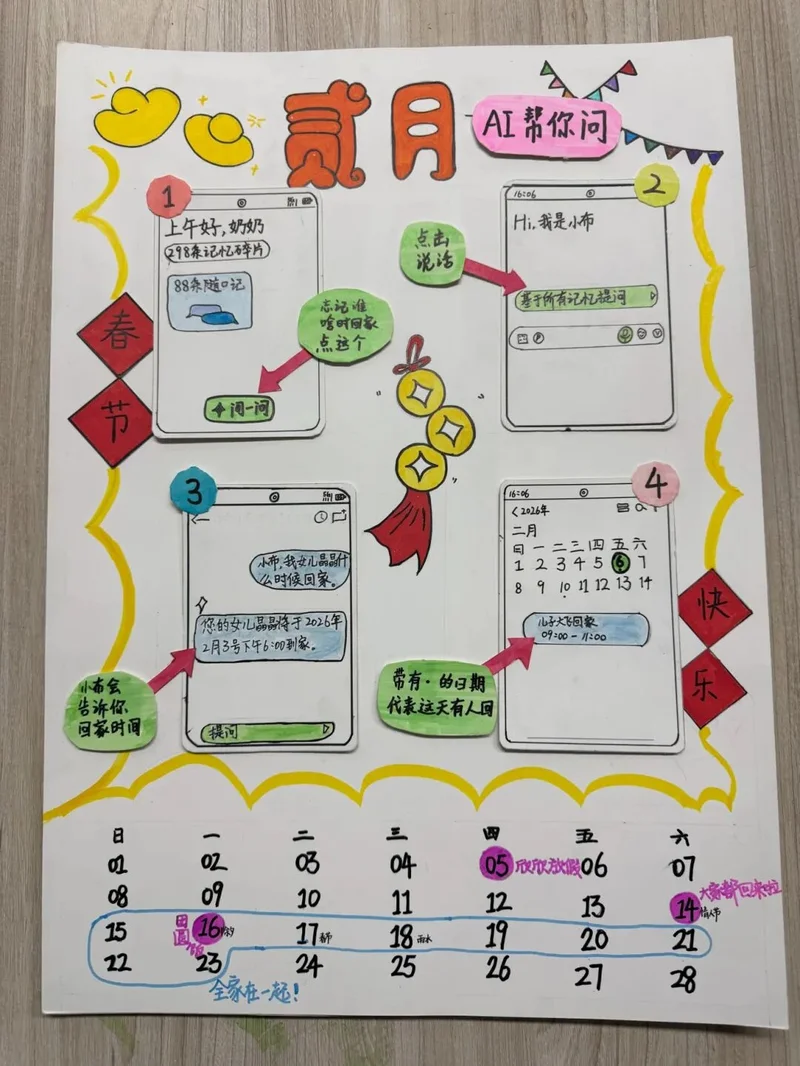 贰月
AI帮你问
春
节
快
乐
1
上午好,奶奶
298条记忆碎片
88条随口记
问一问
忘记谁
啥时回家
点这个
2
16:06
Hi,我是小布
基于所有记忆提问
点击
说话
3
小布,我女儿晶晶什
么时候回家。
您的女儿晶晶将于2026年
2月3号下午6:00到家。
提问
小布会
告诉你
回家时间
4
16:06
<2026年
二月
日 一 二 三 四 五 六
1 2 3 4 5 6 7
8 9 10 11 12 13 14
儿子大飞回家
09:00-11:00
带有·的日期
代表这天有人回
日 一 二 三 四 五 六
01 02 03 04 05 欣欣放假 06 07
大家都回来啦
08 09 10 11 12 13 14 情人节
15 团圆饭 16 除夕 17 春节 18 雨水 19 20 21
22 23 24 25 26 27 28
全家在一起!